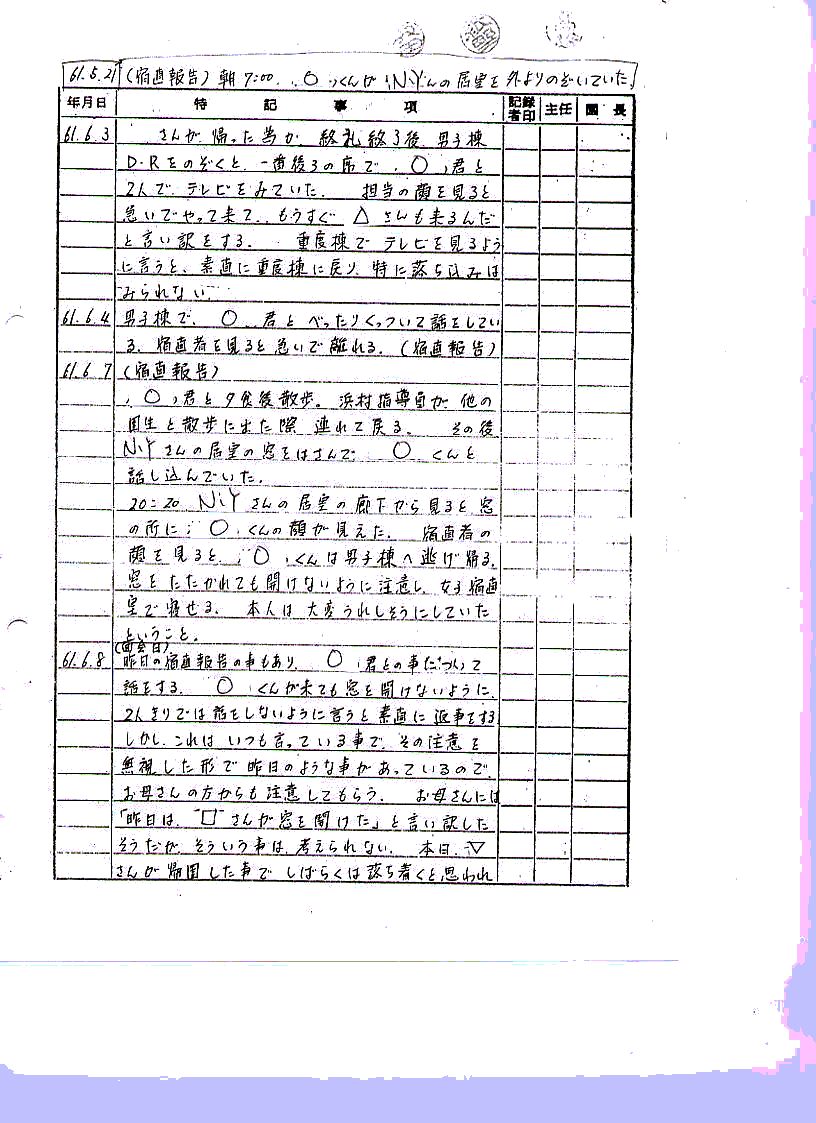 61.5.21 (宿直報告) 朝 7:00. ○くんが N.Yさんの居室を外よりのぞいていた。
年月日 特記事項 記録者印 主任 園長
61.6.3 さんが帰った為か、終礼終了後、男子棟
D・Rをのぞくと、一番後ろの席で、○君と
2人で、テレビをみていた。 担当の顔を見ると
急いでやって来て、もうすぐ △さんも来るんだ
と言い訳をする。 重度棟でテレビを見るよう
に言うと、素直に重度棟に戻り、特に落ち込みは
みられない。
61.6.4 男子棟で、○君とべったりくっついて話をしてい
る。宿直者を見ると急いで離れる。(宿直報告)
61.6.7 (宿直報告)
○君と夕食後散歩。浜村指導員が、他の
園生と散歩に出た際 連れて戻る。 その後
N.Yさんの居室の窓をはさんで ○くんと
話し込んでいた。
20:20 N.Yさんの居室の廊下から見ると窓
の所に ○くんの顔が見えた。 宿直者の
顔を見ると、○くんは男子棟へ逃げ帰る。
窓をたたかれても開けないように注意し、女子宿直
室で寝せる。 本人は大変うれしそうにしていた
ということ。
(面会日)
61.6.8 昨日の宿直報告の事もあり、○君との事について
話をする。 ○くんが来ても窓を開けないように、
2人きりでは話をしないように言うと素直に返事をする
しかし、これはいつも言っている事で、その注意を
無視した形で昨日のような事があっているので、
お母さんの方からも注意してもらう。 お母さんには
「昨日は、"□"さんが窓を開けた」と言い訳した
そうだが、そういう事は、考えられない。 本日、▽
さんが帰園した事で しばらくは落ち着くと思われ